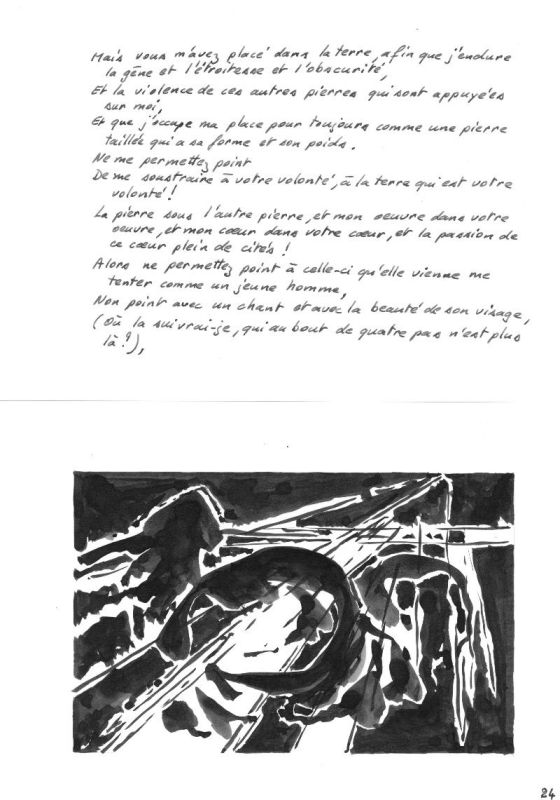 Mais vous m'avez placé dans la terre, afin que j'endure
la gêne et l'étroitesse et l'obscurité,
Et la violence de ces autres pierres qui sont appuyées
sur moi,
Et que j'occupe ma place pour toujours comme une pierre
taillée qui a sa forme et son poids.
Ne me permettez point
De me soustraire à votre volonté, à la terre qui est votre
volonté!
La pierre sous l'autre pierre, et mon oeuvre dans votre
oeuvre, et mon cœur dans votre cœur, et la passion de
ce cœur plein de cités!
Alors ne permettez point à celle-ci qu'elle vienne me
tenter comme un jeune homme,
Non point avec un chant et avec la beauté de son visage,
(Où la suivrai-je, qui au bout de quatre pas n'est plus
là?),
24